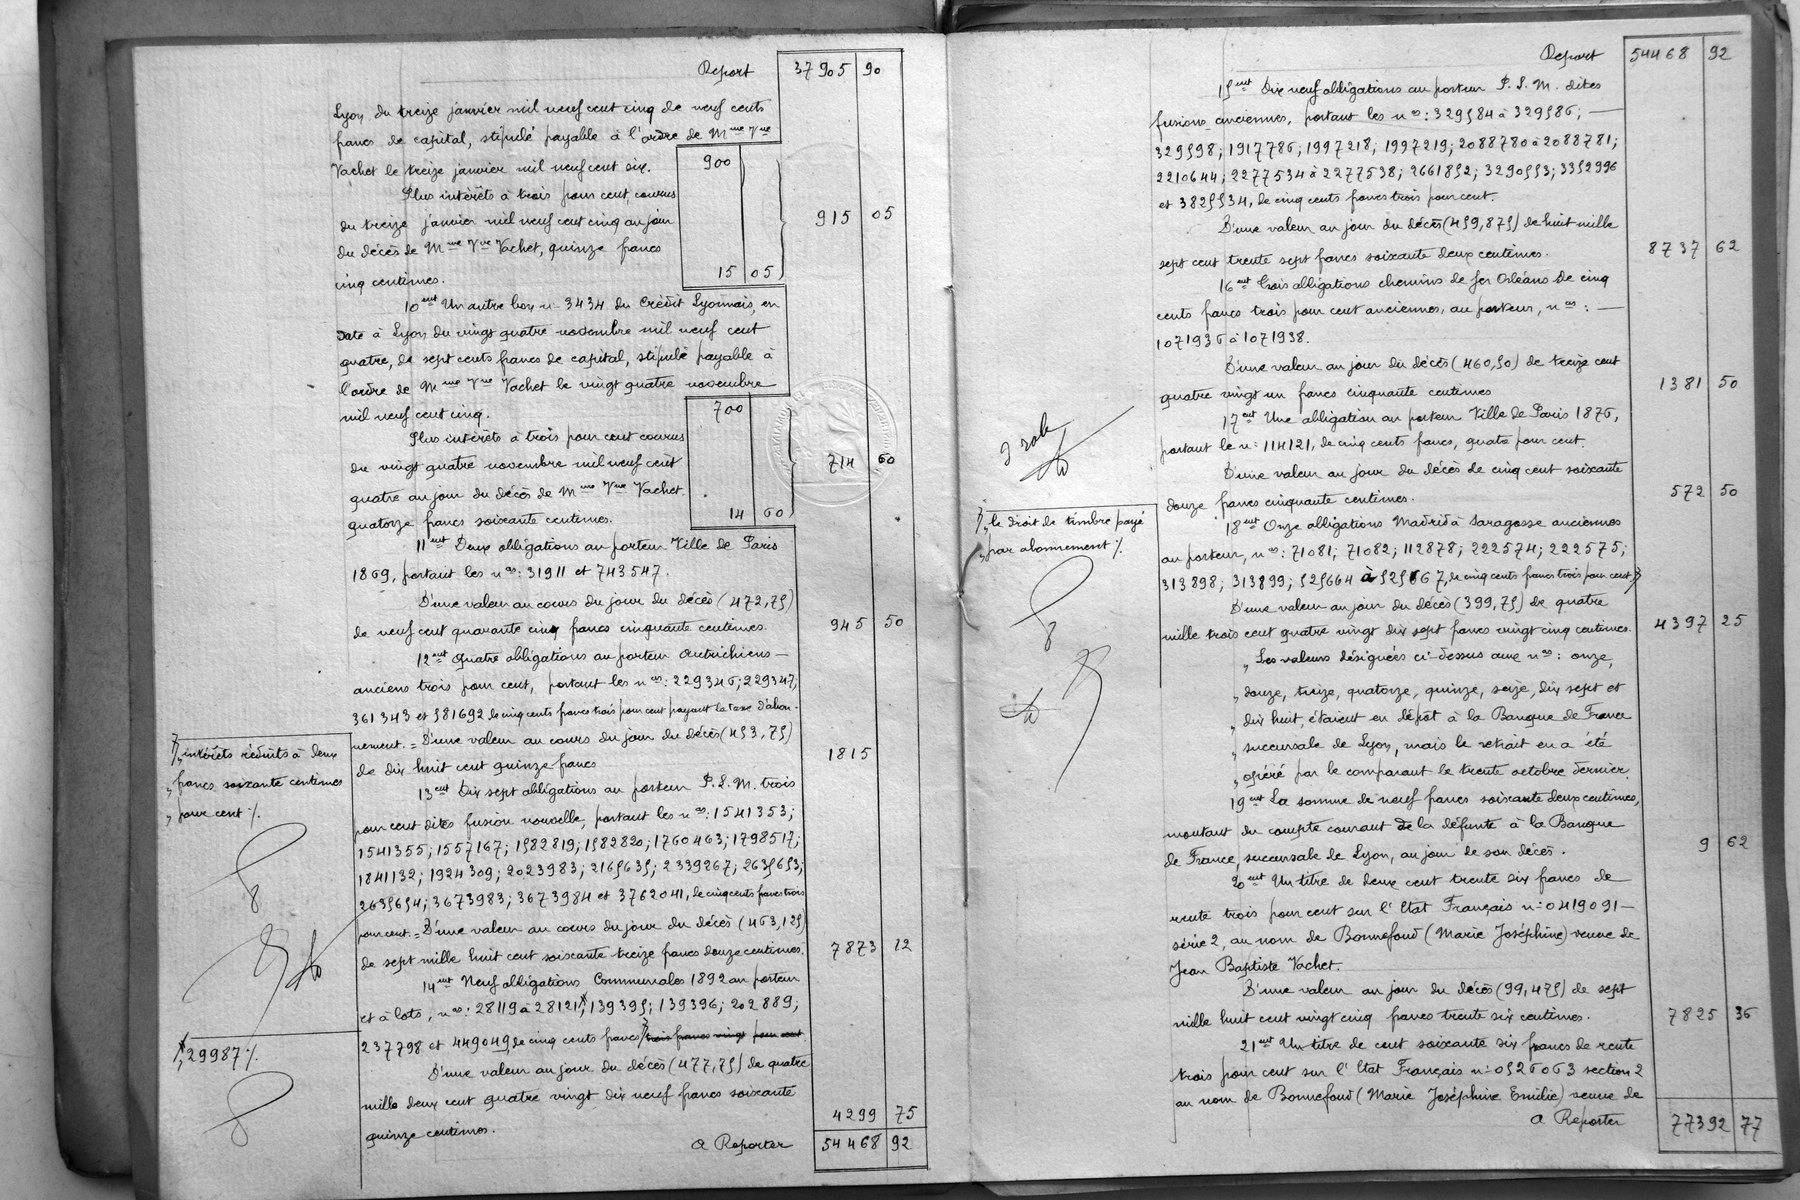 Report 37905 90
Lyon du treize janvier mil neuf cent cinq de neuf cents
francs de capital, stipulé payable à l'ordre de Mme Vve
Vachet le treize janvier mil neuf cent six. 900
Plus intérêts à trois pour cent courus
du treize janvier mil neuf cent cinq au jour 915 05
du décès de Mme Vve Vachet, quinze francs
cinq centimes. 15 05
10ent Un autre bon n: 3434 du Crédit Lyonnais, en
date à Lyon du vingt quatre novembre mil neuf cent
quatre, de sept cents francs de capital, stipulé payable à
l'ordre de Mme Vve Vachet le vingt quatre novembre
mil neuf cent cinq. 700
Plus intérêts à trois pour cent courus
du vingt quatre novembre mil neuf cent 714 60
quatre au jour du décès de Mme Vve Vachet.
quatorze francs soixante centimes. 14 60
11ent Deux obligations au porteur Ville de Paris
1869, portant les nos: 31911 et 743547.
D'une valeur au cours du jour du décès (472,75)
de neuf cent quarante cinq francs cinquante centimes. 945 50
12ent Quatre obligations au porteur Autrichiens —
anciens trois pour cent, portant les nos: 229346; 229347;
361343 et 581692 de cinq cents francs trois pour cent payant la taxe d'abon-
nement. = D'une valeur au cours du jour du décès (453,75)
de dix huit cent quinze francs 1815
13ent Dix sept obligations au porteur P. L. M. trois
pour cent dites fusion nouvelle, portant les nos: 1541353;
1541355; 1557167; 1582819; 1582820; 1760463; 1798517;
1841132; 1924309; 2023983; 2165635; 2339267; 2635653;
2635654; 3673983; 3673984 et 3762041, de cinq cents francs trois
pour cent. = D'une valeur au cours du jour du décès (463,125)
de sept mille huit cent soixante treize francs douze centimes. 7873 12
14ent Neuf obligations Communales 1892 au porteur
et à lots, nos: 28119 à 28121; 139395; 139396; 202889;
237798 et 449049, de cinq cents francs trois francs vingt pour cent
D'une valeur au jour du décès (477,75) de quatre
mille deux cent quatre vingt dix neuf francs soixante
quinze centimes. 4299 75
A Reporter 54468 92
„ intérêts réduits à deux
„ francs soixante centimes
„ pour cent ./.
„ 29987 ./.
Report 54468 92
15ent Dix neuf obligations au porteur P. L. M. dites
fusions anciennes, portant les nos: 329584 à 329586; —
329598; 1917786; 1997218; 1997219; 2088780 à 2088781;
2210644; 2277534 à 2277538; 2661852; 3290553; 3352996
et 3825534, de cinq cents francs trois pour cent.
D'une valeur au jour du décès (459,875) de huit mille
sept cent trente sept francs soixante deux centimes. 8737 62
16ent Trois obligations chemins de fer Orléans de cinq
cents francs trois pour cent anciennes, au porteur, nos: —
1071936 à 1071938.
D'une valeur au jour du décès (460,50) de treize cent
quatre vingt un francs cinquante centimes 1381 50
17ent Une obligation au porteur Ville de Paris 1876,
portant le n: 114121, de cinq cents francs, quatre pour cent.
D'une valeur au jour du décès de cinq cent soixante
douze francs cinquante centimes. 572 50
18ent Onze obligations Madrid à Saragosse anciennes
au porteur, nos: 71081; 71082; 112878; 222574; 222575;
313898; 313899; 525664 à 525667, de cinq cents francs trois pour cent
D'une valeur au jour du décès (399,75) de quatre
mille trois cent quatre vingt dix sept francs vingt cinq centimes. 4397 25
„ Les valeurs désignées ci-dessus aux nos: onze,
„ douze, treize, quatorze, quinze, seize, dix sept et
„ dix huit, étaient en dépôt à la Banque de France
„ succursale de Lyon, mais le retrait en a été
„ opéré par le comparant le trente octobre dernier.
19ent La somme de neuf francs soixante deux centimes,
montant du compte courant de la défunte à la Banque
de France, succursale de Lyon, au jour de son décès. 9 62
20ent Un titre de deux cent trente six francs de
rente trois pour cent sur l'Etat Français n: 0419091 —
série 2, au nom de Bonnefoud (Marie Joséphine) veuve de
Jean Baptiste Vachet.
D'une valeur au jour du décès (99,475) de sept
mille huit cent vingt cinq francs trente six centimes. 7825 36
21ent Un titre de cent soixante six francs de rente
trois pour cent sur l'Etat Français n: 0526063 section 2
au nom de Bonnefoud (Marie Joséphine Emilie) veuve de
A Reporter 77392 77
„ le droit de timbre payé
„ par abonnement ./.